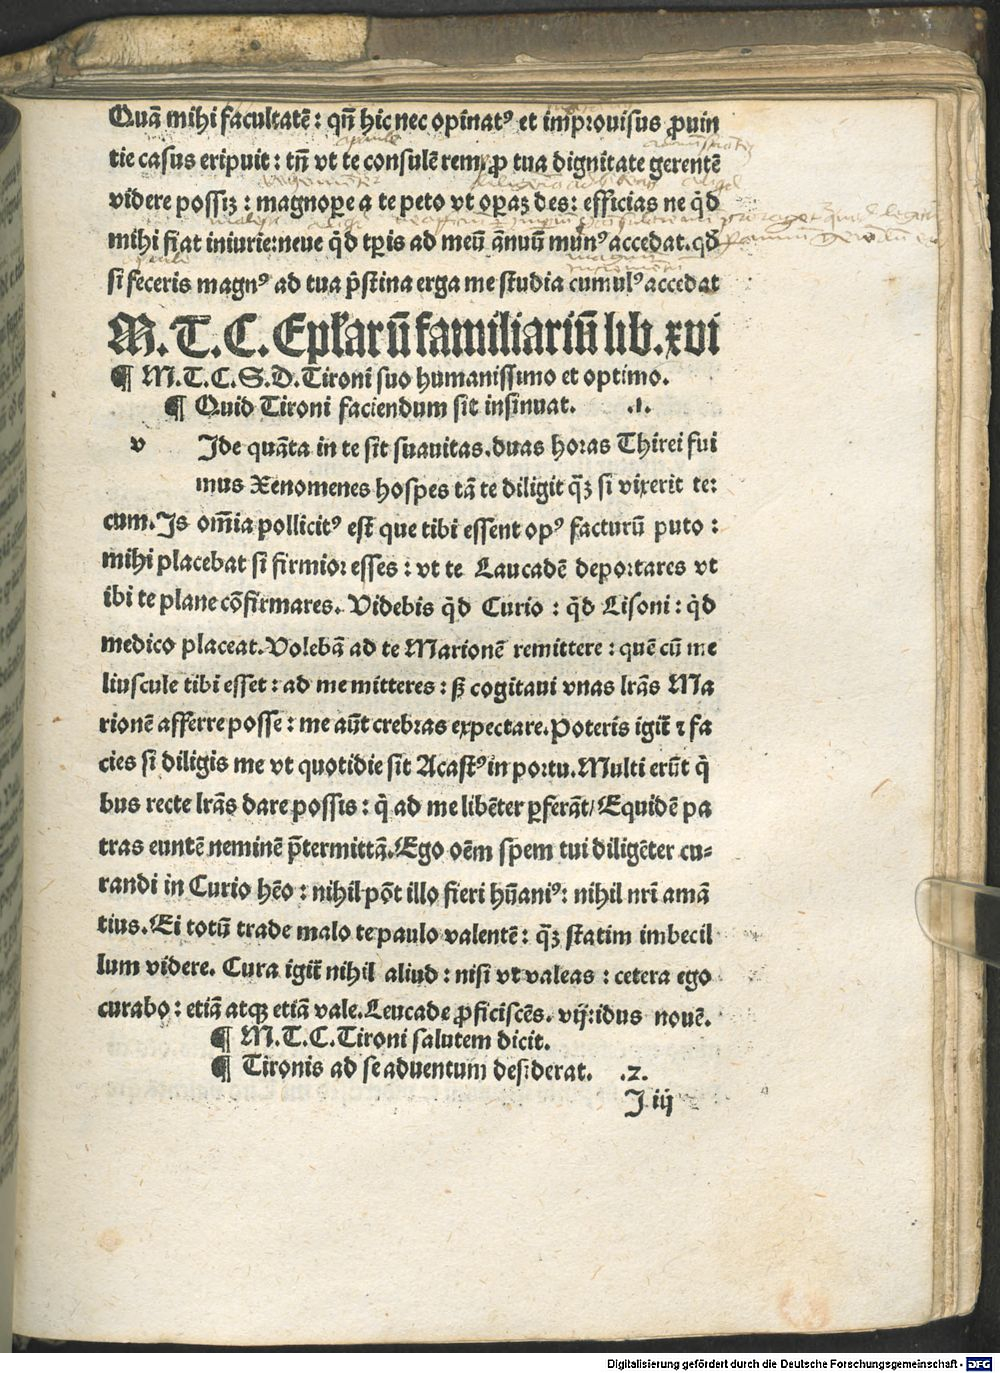 Quã mihi facultatẽ: qñ hic nec opinatꝰ et improuisus ꝓuin
tie casus eripuit: tñ vt te consulẽ rem ꝓ tua dignitate gerentẽ
videre possiꝫ: magnopere a te peto vt operaꝫ des: efficias ne qd̃
mihi fiat iniurie: neue qd̃ tꝑis ad meũ ãnuũ munꝰ accedat. qd̃
si feceris magnꝰ ad tua p̃stina erga me studia cumulꝰ accedat
M. T. C. Epl̃arũ familiariũ lib. xvi
¶ M.T.C.S.D. Tironi suo humanissimo et optimo.
¶ Quid Tironi faciendum sit insinuat. .1.
v Ide quãta in te sit suauitas. duas horas Thirei fui
mus Xenomenes hospes tã te diligit qꝫ̃ si vixerit te:
cum. Is om̃ia pollicitꝰ est̃ que tibi essent opꝰ facturũ puto :
mihi placebat si firmior esses : vt te Laucadẽ deportares vt
ibi te plane cõfirmares. Videbis qd̃ Curio : qd̃ Lisoni : qd̃
medico placeat. Volebã ad te Marionẽ remittere : quẽ cũ me
liuscule tibi esset : ad me mitteres : sꝫ cogitaui vnas lr̃as Ma
rionẽ afferre posse : me aũt crebras expectare. Poteris igit̃ ⁊ fa
cies si diligis me vt quotidie sit Acastꝰ in portu. Multi erũt q̃
bus recte lr̃as dare possis : q̃ ad me libẽter ꝑferãt/ Equidẽ pa
tras euntẽ neminẽ p̃termittã. Ego oẽm spem tui diligẽter cu-
randi in Curio hẽo : nihil põt illo fieri hũaniꝰ: nihil nr̃i amã
tius. Ei totũ trade malo te paulo valentẽ : qꝫ̃ statim imbecil
lum videre. Cura igit̃ nihil aliud : nisi vt valeas : cetera ego
curabo : etiã atqꝫ etiã vale. Leucade ꝓficiscẽs. vij: idus nouẽ.
¶ M.T.C. Tironi salutem dicit.
¶ Tironis ad se aduentum desiderat. .2.
J iij
Digitalisierung gefördert durch die Deutsche Forschungsgemeinschaft - DFG